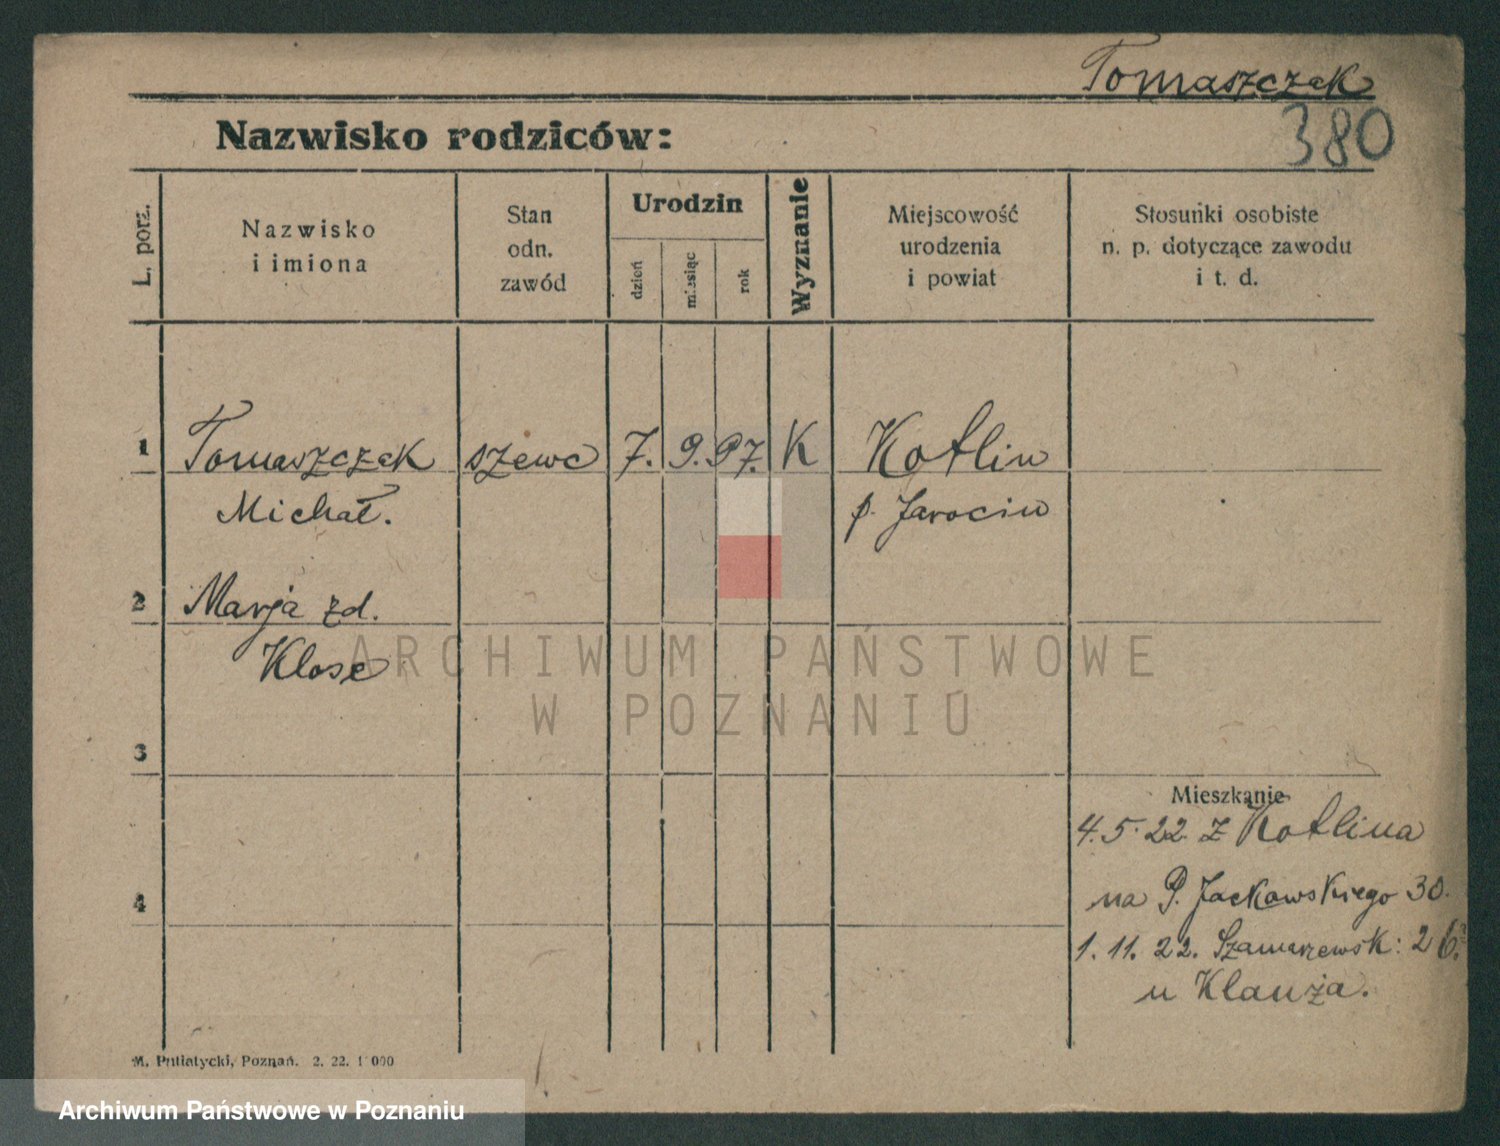 Tomaszczak
380
Nazwisko rodziców:
L. porz.
Nazwisko
i imiona
Stan
odn.
zawód
Urodzin
dzień
miesiąc
rok
Wyznanie
Miejscowość
urodzenia
i powiat
Stosunki osobiste
n. p. dotyczące zawodu
i t. d.
1 Tomaszczak szewc 7. 9. 97. K Kotlin
Michał. p. Jarocin
2 Marja zd.
Klose
ARCHIWUM PAŃSTWOWE
W POZNANIU
3
Mieszkanie
4.5.22. z Kotlina
4 na P. Jackowskiego 30.
1. 11. 22. Szamarzewsk: 26.
u Klauża.
M. Putiatycki, Poznań. 2. 22. 1 000
Archiwum Państwowe w Poznaniu